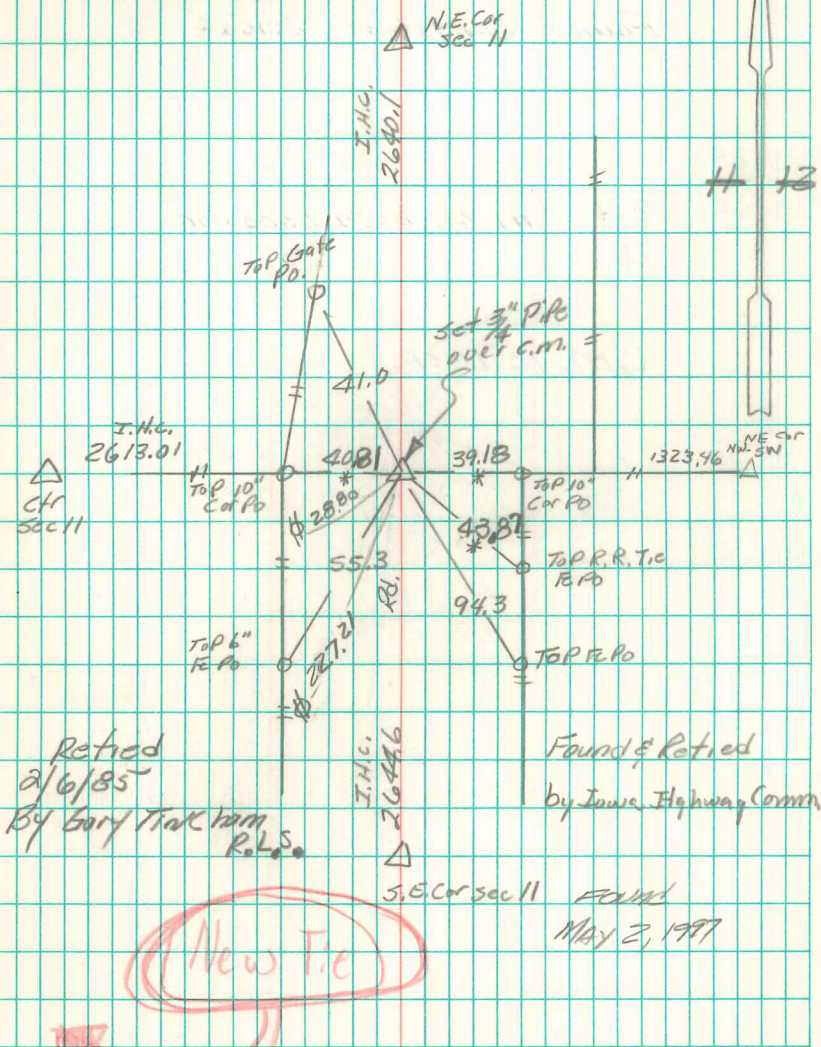 N.E. Cor
Sec 11
I.H.C.
2640.1
11 13
Top Gate
Po.
Set 3/4" Pipe
over c.m.
41.0
I.H.C.
2613.01
Ctr
Sec 11
Top 10"
Cor Po
40.81
39.18
Top 10"
Cor Po
1323.46
NE Cor
NW SW
28.80
43.87
Top R.R. Tie
Fc Po
55.3
Rd.
94.3
Top 6"
Fc Po
227.21
Top Fc Po
Retied
2/6/85
By Gary Tinkham
R.L.S.
I.H.C.
2644.6
Found & Retied
by Iowa Highway Comm
S.E. Cor sec 11
Found
May 2, 1997
New Tie